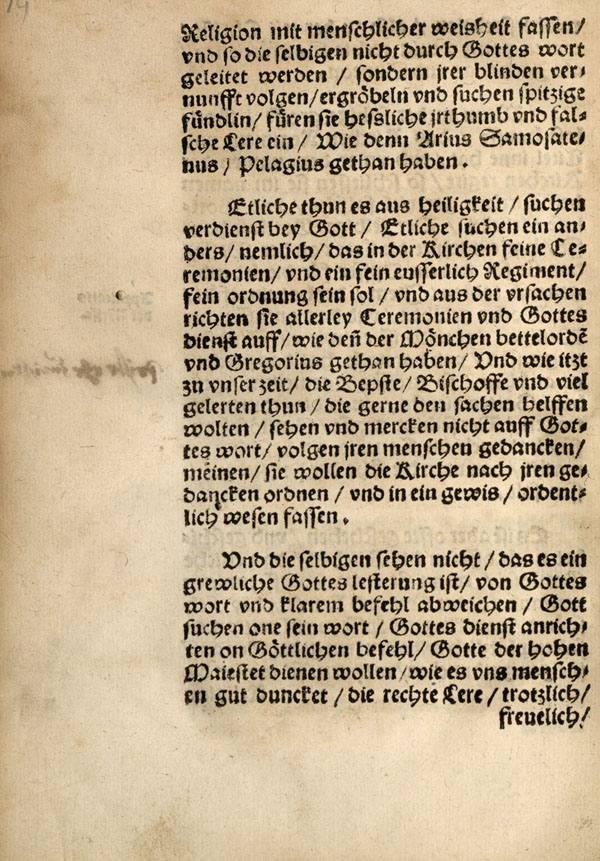 14
Religion mit menschlicher weisheit fassen/
vnd so die selbigen nicht durch Gottes wort
geleitet werden / sondern jrer blinden ver⸗
nunfft volgen/ergröbeln vnd suchen spitzige
fündlin/ füren sie hessliche jrthumb vnd fal⸗
sche Lere ein / Wie denn Arius Samosate⸗
nus / Pelagius gethan haben.
Etliche thun es aus heiligkeit / suchen
verdienst bey Gott / Etliche suchen ein an⸗
ders/ nemlich/ das in der Kirchen feine Ce⸗
remonien/ vnd ein fein eusserlich Regiment/
fein ordnung sein sol / vnd aus der vrsachen
richten sie allerley Ceremonien vnd Gottes
dienst auff/ wie deñ der Mönchen bettelordē
vnd Gregorius gethan haben/ Vnd wie itzt
zu vnser zeit/ die Bepste/ Bischoffe vnd viel
gelerten thun / die gerne den sachen helffen
wolten / sehen vnd mercken nicht auff Got⸗
tes wort/ volgen jren menschen gedancken/
meinen/ sie wollen die Kirche nach jren ge⸗
dancken ordnen / vnd in ein gewis / ordent⸗
lich wesen fassen.
Vnd die selbigen sehen nicht / das es ein
grewliche Gottes lesterung ist/ von Gottes
wort vnd klarem befehl abweichen / Gott
suchen one sein wort / Gottes dienst anrich⸗
ten on Göttlichen befehl/ Gotte der hohen
Maiestet dienen wollen/ wie es vns mensch⸗
en gut duncket / die rechte Lere / trotzlich/
freuelich/